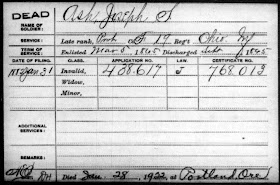 DEAD
NAME OF SOLDIER: Ash, Joseph S
SERVICE: Late rank, Co. F 19 Reg't Ohio
TERM OF SERVICE: Enlisted Mar 5, 1865 Discharged 1865
DATE OF FILING. CLASS. APPLICATION NO. LAW. CERTIFICATE NO.
Invalid, 408.617 J 768.013
Widow,
Minor,
ADDITIONAL SERVICES:
REMARKS:
Died Jan. 28, 1922, at Portland, Ore